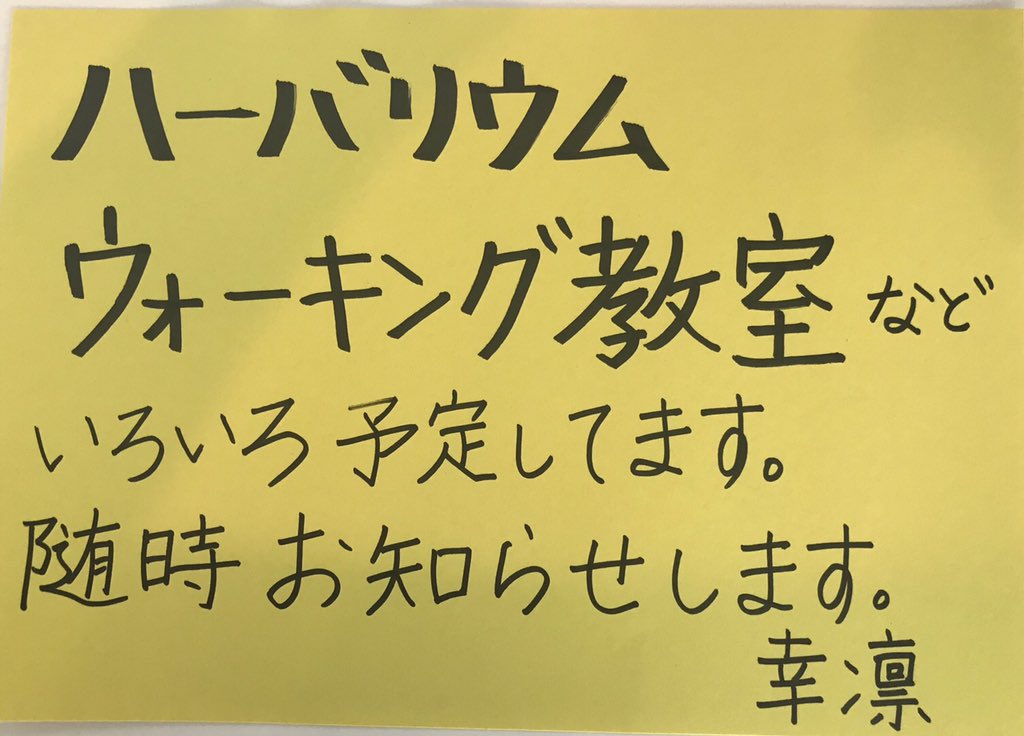 ハーバリウム
ウォーキング教室など
いろいろ予定してます。
随時お知らせします。
幸凛